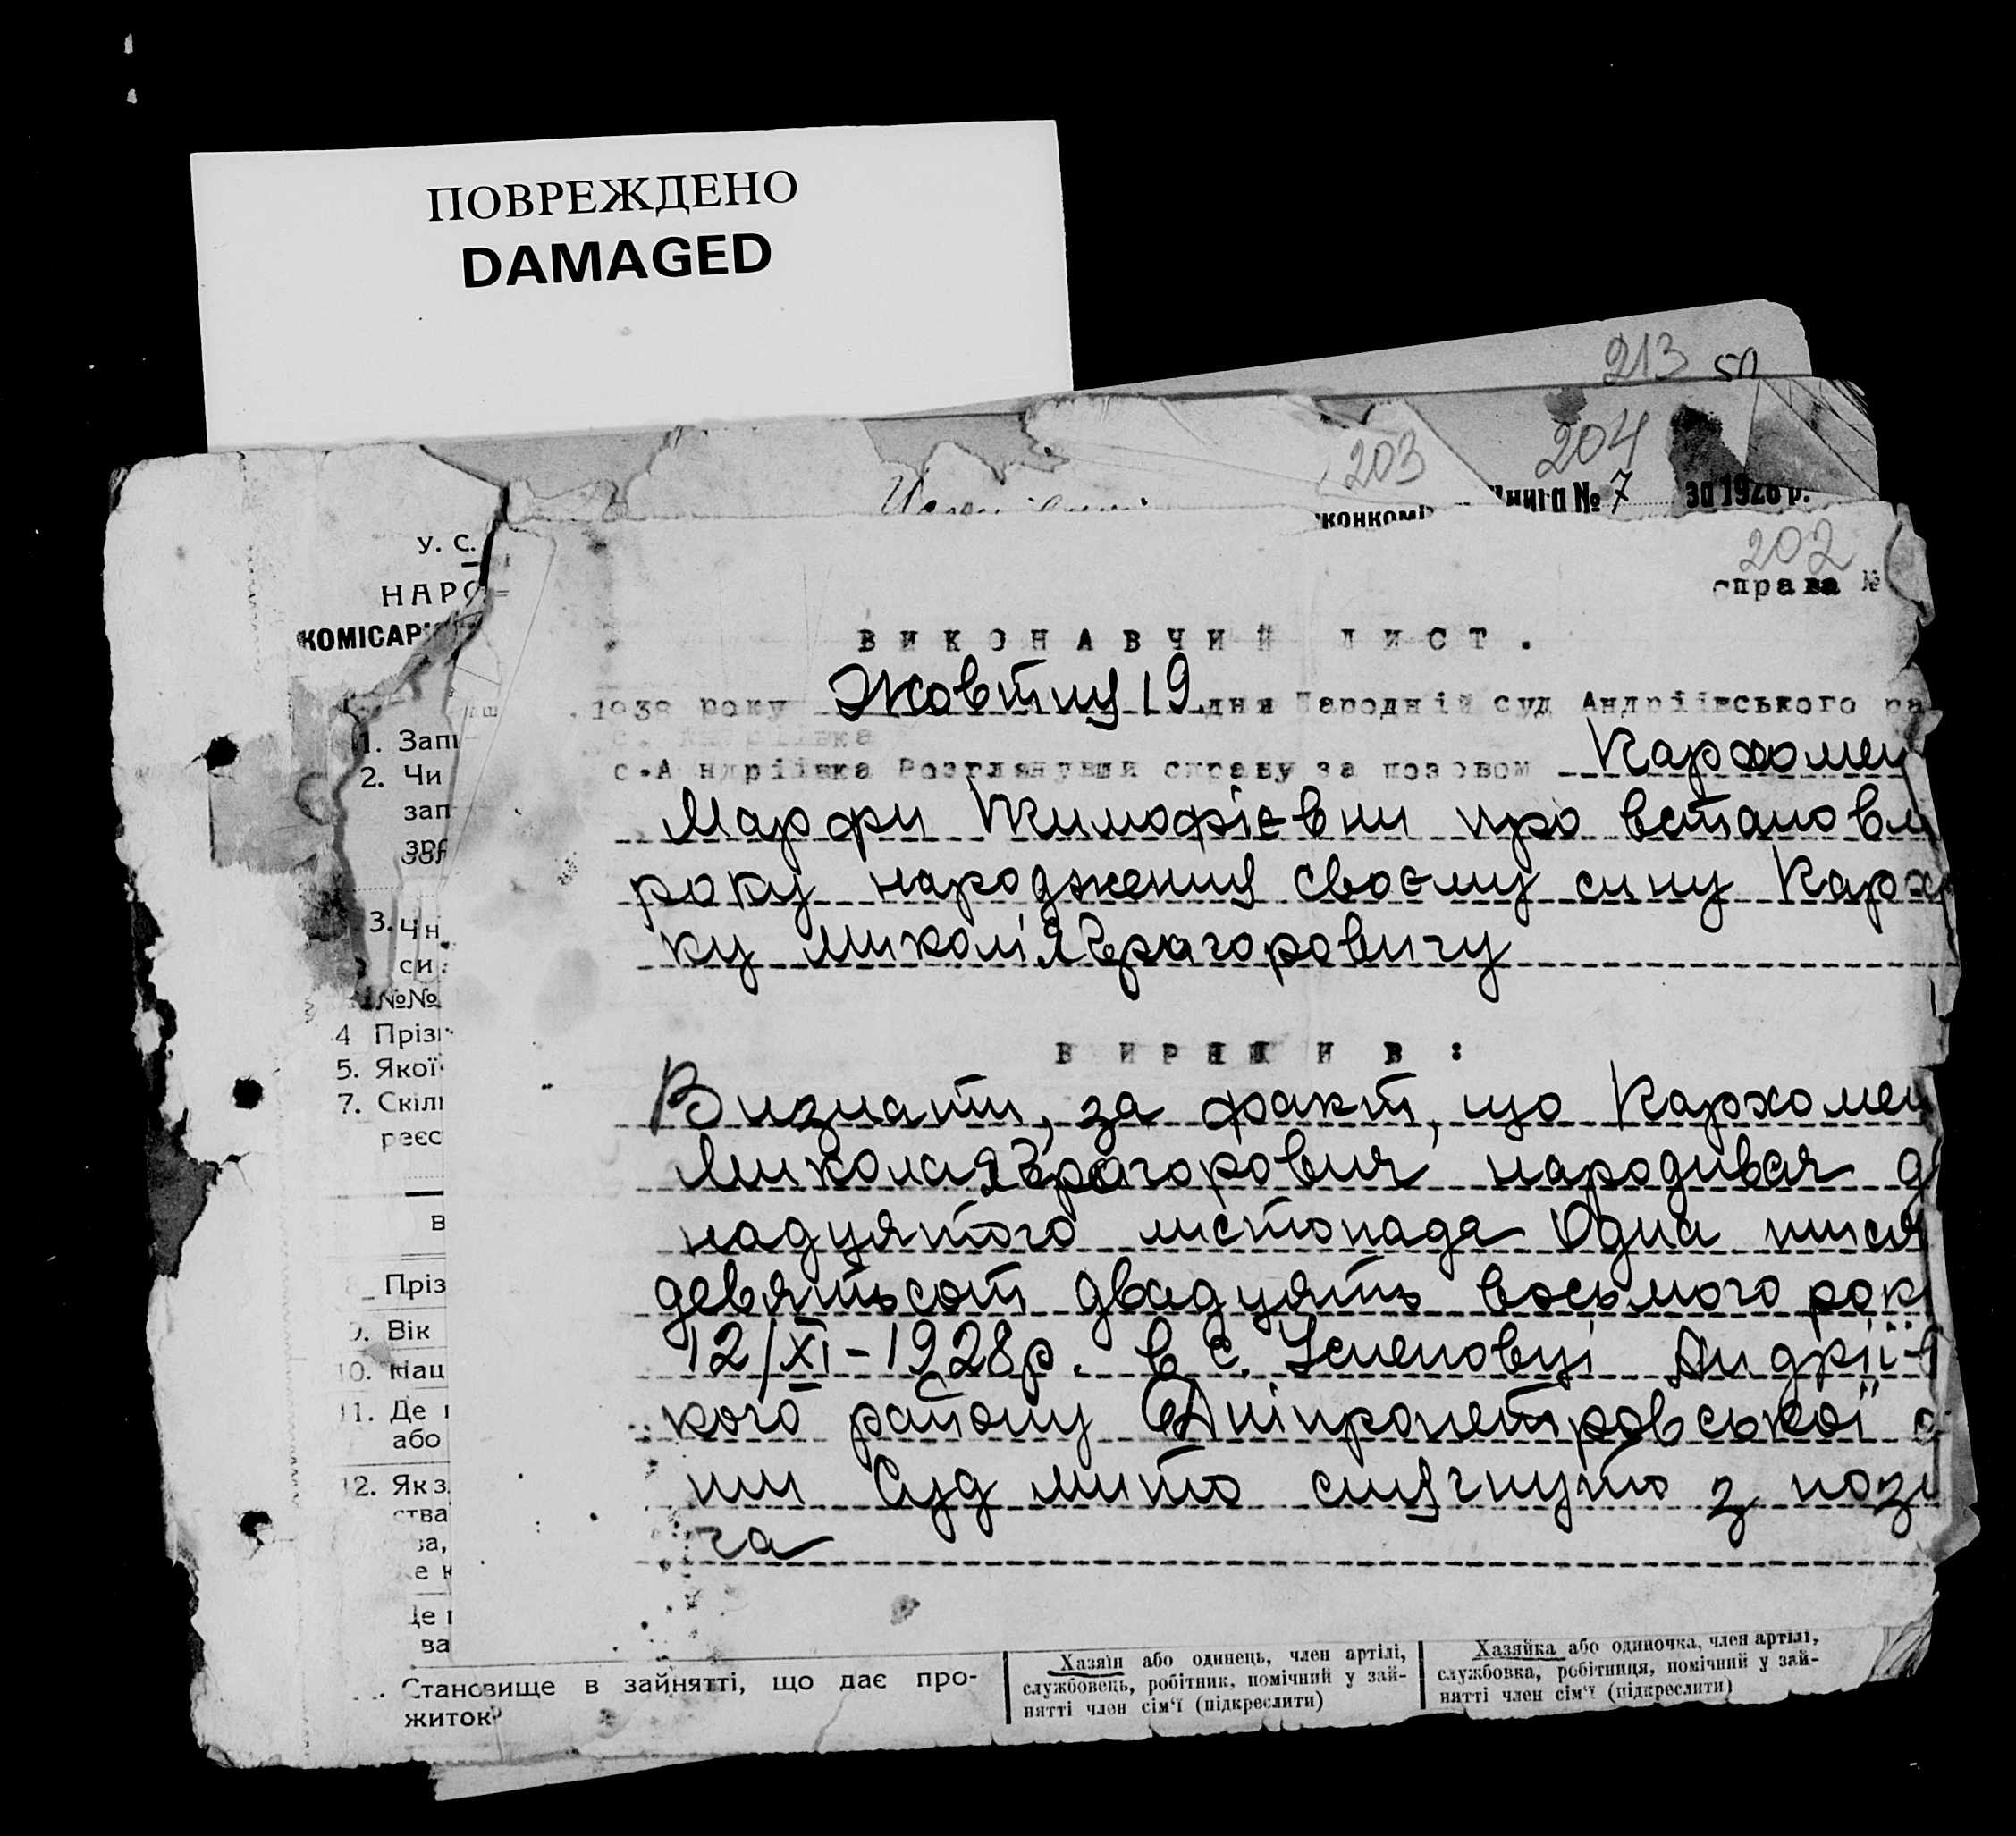 ПОВРЕЖДЕНО
DAMAGED
213 50
203
204
книга № 7 за 1928 р.
202
справа №
У. С.
НАРО
КОМІСАРІ
ВИКОНАВЧИЙ ЛИСТ.
1938 року Жовтня 19 дня Народній суд Андріївського ра
с. Андріївка
с.Андріївка Розглянувши справу за позовом Пархомен
Марфи Тимофієвни про встановл
року народження своєму сину Парх
ку Миколі Григоровичу
ВИРІШИВ:
Визнати, за факт, що Пархомен
Микола Григорович народився д
надцятого листопада Одна тися
девятьсот двадцять восьмого рок
12/XI-1928р. в с. Успеновці Андріїв
кого району Дніпропетровської о
ти Суд мито стягнуто з пози
ча
1. Запи
2. Чи
зап
3. Чи
си
№№
4 Прізв
5. Якої
7. Скіль
реєс
В
8. Пріз
9. Вік
10. Нац
11. Де
або
12. Як з
ства
ва,
е к
Де
ва
Становище в зайнятті, що дає про-
житок?
Хазяїн або одинець, член артілі,
службовець, робітник, помічний у зай-
нятті член сім'ї (підкреслити)
Хазяйка або одиночка, член артілі,
службовка, робітниця, помічний у зай-
нятті член сім'ї (підкреслити)